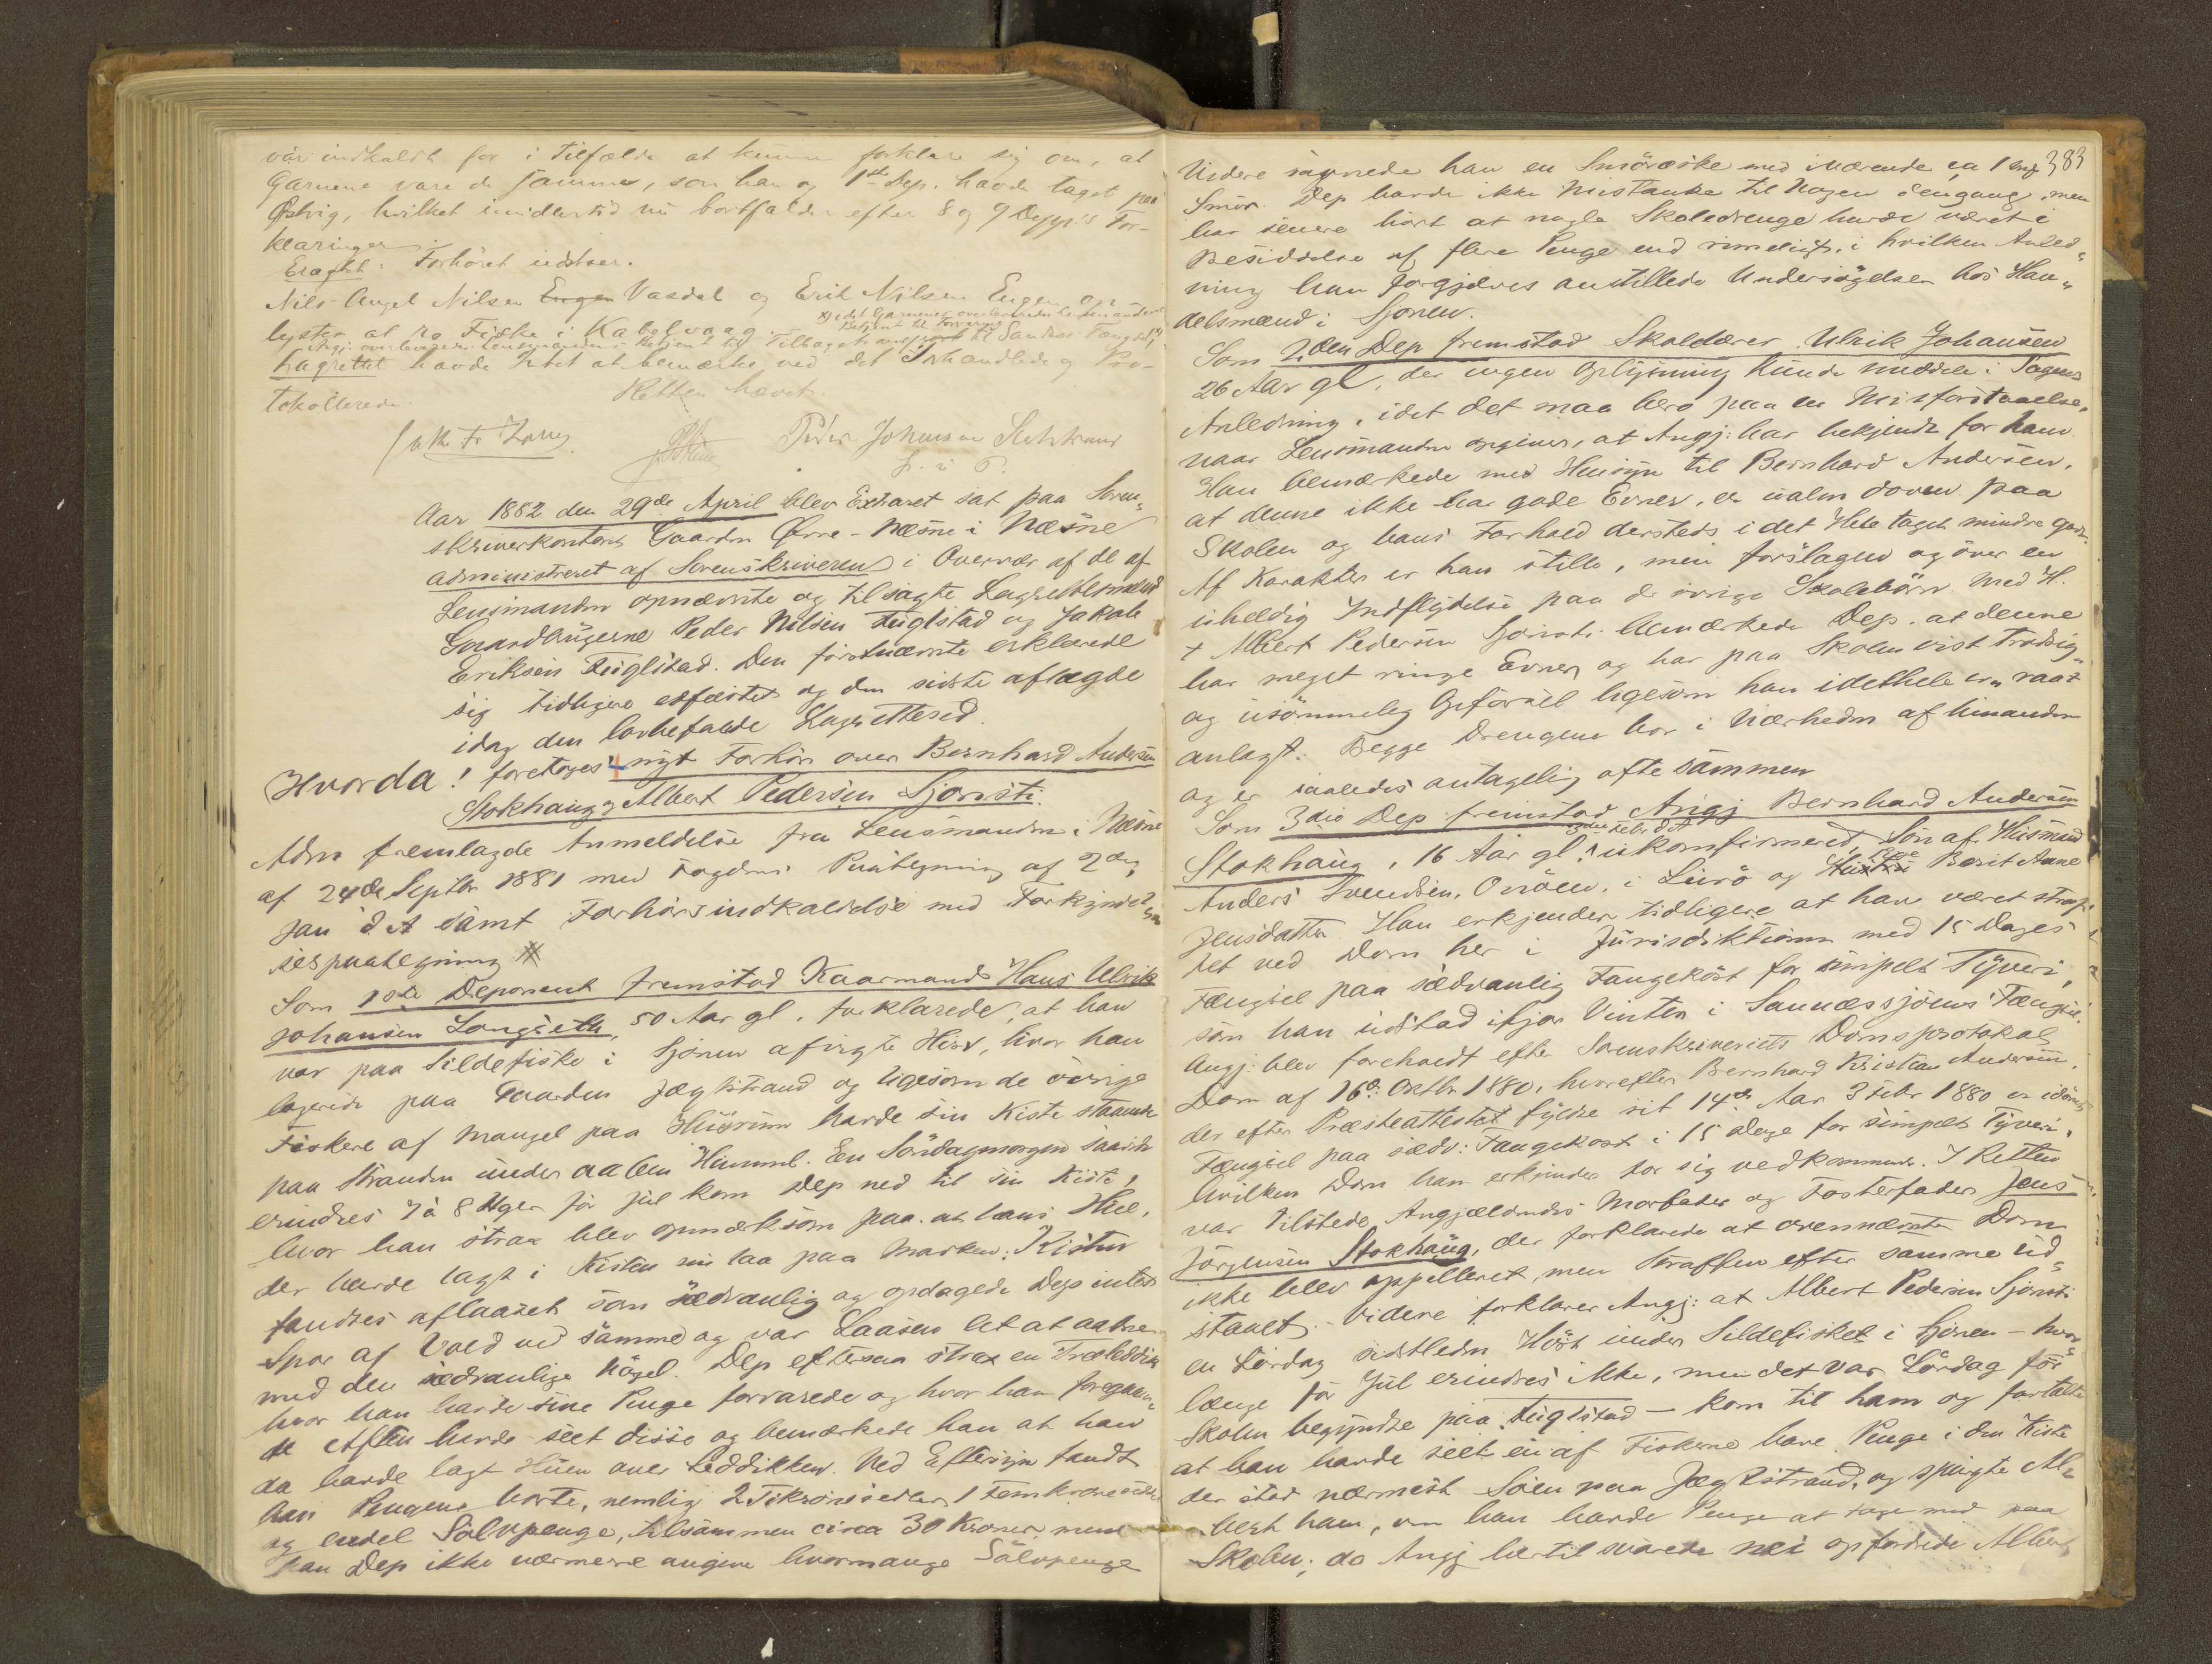 var indkaldt for i Tilfælde at kunne forklare sig om, at
Garnene vare de samme, som han og 1ste Dep. havde taget paa
Østvig, hvilket imidlertid nu bortfalder efter 8 og 9 Depp.s For-
klaringer.
Eragtet: Forhøret udstaar.
Nils Angel Nilsen Engen Vasdal og Erik Nilsen Engen op-
x) idet Garnene overleveredes Lensmandens
Betjent til Forvaring
lyster at ro Fiske i Kabelvaag.
Angj. overleveredes Lensmandens Betjent til Tilbagetransport til Sandnes Fængsel,
Lagrettet havde Intet at bemærke ved det Forhandlede og Pro-
tokollerede.
Retten hævet.
Peder Johansen
Aar 1882 den 29de April blev Extraret sat paa Soren-
skriverkontoret Gaarden Øvre-Næsne i Næsne
administreret af Sorenskriveren i Overvær af de af
Lensmanden opnævnte og tilsagte Lagrettemænd
Gaardbrugerne Peder Nilsen Fuglstad og Jakob
Eriksen Fuglstad. Den førstnævnte erklærede
sig tidligere edfæstet og den sidste aflagde
idag den lovbefalede Lagretteed.
Hvorda! foretoges nyt Forhør over Bernhard Andersen
Stokhaug og Albert Pedersen Sjonsti.
Adm fremlagde Anmeldelse fra Lensmanden i Næsne
af 24de Septbr 1881 med Fogdens Paategning af 2den
Jan d. A samt Forhørsindkaldelse med Forkyndel-
sespaategning #
Som 1ste Deponent fremstod Kaarmand Hans Ulrik
Johansen Langseth, 50 Aar gl. forklarede, at han
var paa Sildefiske i Sjonen afvigte Høst, hvor han
logerede paa Gaarden Jægtstrand og ligesom de øvrige
Fiskere af Mangel paa Husrum havde sin Kiste staaende
paa Stranden under aaben Himmel. En Søndagmorgen saavidt
erindres 7 à 8 Uger før Jul kom Dep ned til sin Kiste,
hvor han strax blev opmærksom paa at hans Hue,
der havde lagt i Kisten nu laa paa Marken; Kisten
fandtes aflaaset som sædvanlig og opdagede Dep intet
Spor af Vold ved samme og var Laasen let at aabne
med den sædvanlige Nøgel. Dep eftersaa strax en Træleddik
hvor han havde sine Penge forvarede og hvor han foregaaen-
de Aften havde seet disse og bemærkede han at han
da havde lagt Huen over Leddikken. Ved Eftersyn fandt
han Pengene borte, nemlig 2 Tikronesedler 1 Femkroneseddel
og endel Sølvpenge, tilsammen circa 30 Kroner, men
kan Dep ikke nærmere angive hvormange Sølvpenge
383
Videre savnede han en Smøræske med iværende ca 1 Mrk
Smør. Dep havde ikke Mistanke til Nogen dengang, men
har senere hørt at nogle Skoledrenge havde været i
Besiddelse af flere Penge end rimeligt, i hvilken Anled-
ning han forgjæves anstillede Undersøgelser hos Han-
delsmænd i Sjonen.
Som 2den Dep fremstod Skolelærer Ulrik Johansen
26 Aar gl, der ingen Oplysning kunde meddele i Sagens
Anledning, idet det maa bero paa en Misforstaaelse,
naar Lensmanden opgiver, at Angj: har bekjendt for ham.
Han bemærkede med Hensyn til Bernhard Andersen,
at denne ikke har gode Evner, er ualm doven paa
Skolen og hans Forhold dersteds i det Hele taget mindre godt.
Af Karakter er han stille, men forslagen og øver en
uheldig Indflydelse paa de øvrige Skolebørn Med H.
t Albert Pedersen Sjonsti bemærkede Dep. at denne
har meget ringe Evner og har paa Skolen vist Trodsig-
og usømmelig Opførsel ligesom han idethele er "raat
anlagt. Begge Drengene bor i Nærheden af hinanden
og er saaledes antagelig ofte sammen
Som 3die Dep fremstod Angj Bernhard Andersen
3die Febr d A
Stokhaug, 16 Aar gl, ukonfirmeret, Søn af Husmand
Anders Svendsen, Onøen, i Lurø og Hustru Pige Berit Anne
Jensdatter. Han erkjender tidligere at have været straf-
fet ved Dom her i Jurisdiktionen med 15 Dages
Fængsel paa sædvanlig Fangekost for simpelt Tyveri,
som han udstod ifjor Vinter i Sannæssjøens Fængsel.
Angj: blev foreholdt efter Sorenskriveriets Domsprotokol
Dom af 16de Oktbr 1880, hvorefter Bernhard Kristian Andersen,
der efter Præsteattestet fyldte sit 14de Aar 3 Febr 1880 er idømt
Fængsel paa sædv: Fangekost i 15 Dage for simpelt Tyveri,
hvilken Dom han erkjender for sig vedkommende. I Retten
var tilstede Angjældendes Morfader og Fosterfader Jens
Jørgensen Stokhaug, der forklarede at ovennævnte Dom
ikke blev appelleret, men Straffen efter samme ud-
staaet. Videre forklarer Angj: at Albert Pedersen Sjonsti
en Lørdag sidstleden Høst under Sildefisket i Sjonen – hvor
længe før Jul erindres ikke, men det var Lørdag før
Skolen begyndte paa Fuglstad – kom til ham og fortalte
at han havde seet en af Fiskerne have Penge i den Kiste
der stod nærmest Søen paa Jægtstrand, og spurgte Al-
bert ham, om han havde Penge at tage med paa
Skolen; da Angj hertil svarede nei opfordrede Albert